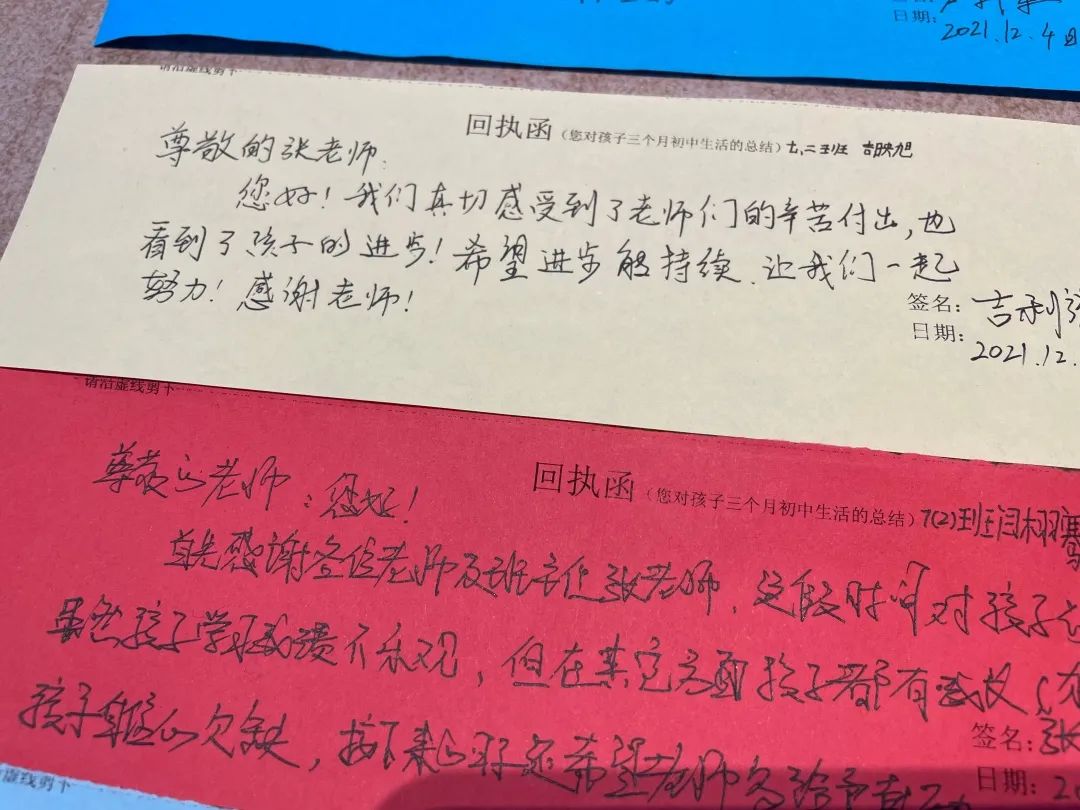 日期:
2021.12.4日
请沿虚线剪下
回执函(您对孩子三个月初中生活的总结)七.二班 吉映旭
尊敬的张老师.
您好!我们真切感受到了老师们的辛苦付出,也
看到了孩子的进步!希望进步能持续.让我们一起
努力!感谢老师!
签名:吉利
日期:
2021.12.
请沿虚线剪下
回执函(您对孩子三个月初中生活的总结)7(2)班闫栩
尊敬的老师:您好!
首先感谢各位老师及班主任张老师,这段时间对孩子
虽然孩子学习成绩不乐观,但在其它方面孩子都有
孩子身上的欠缺,接下来的日子还希望老师多给予
签名:张
日期:20
沿虚线剪下